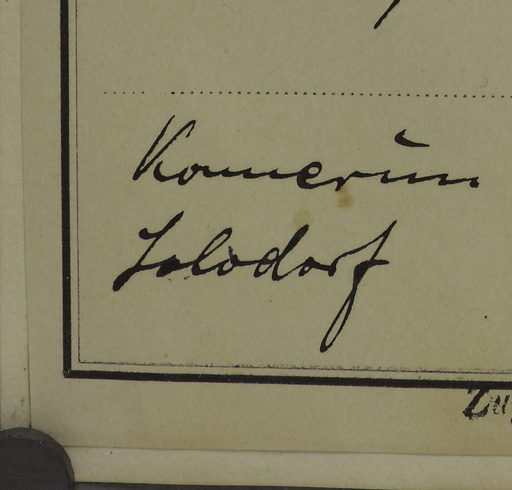 Kamerun
Lolodorf